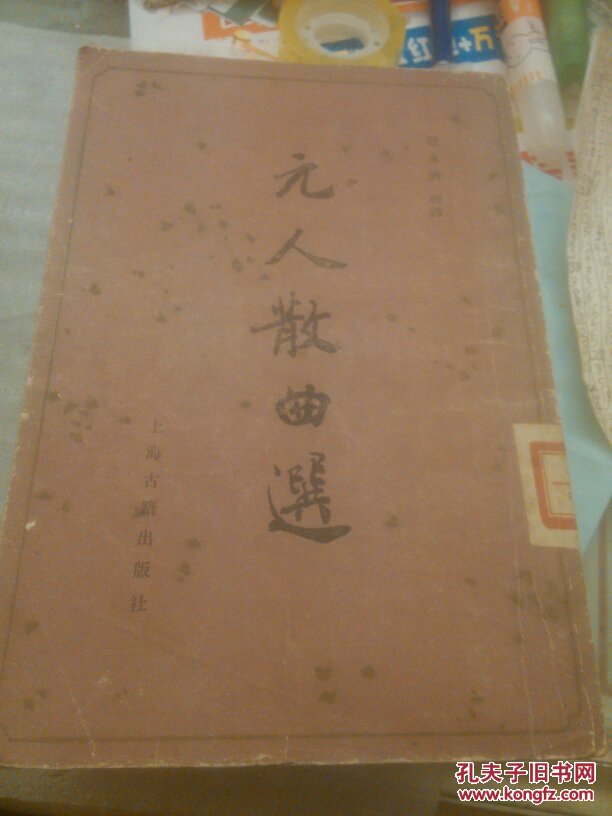 元人散曲選
上海古籍出版社
孔夫子旧书网
www.kongfz.com